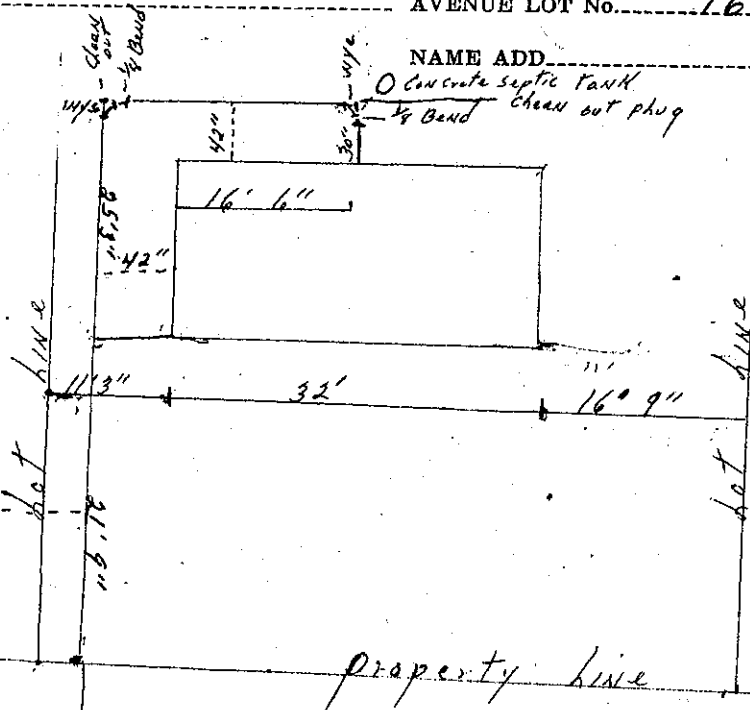 AVENUE LOT No. 16
NAME ADD
Clean out
1/8 Bend
Wye
Wye
O Concrete septic tank
Clean out plug
1/8 Bend
42"
30"
16' 6"
42"
Lot Line
11' 3"
32'
11'
16' 9"
Lot Line
21' 9"
Property Line